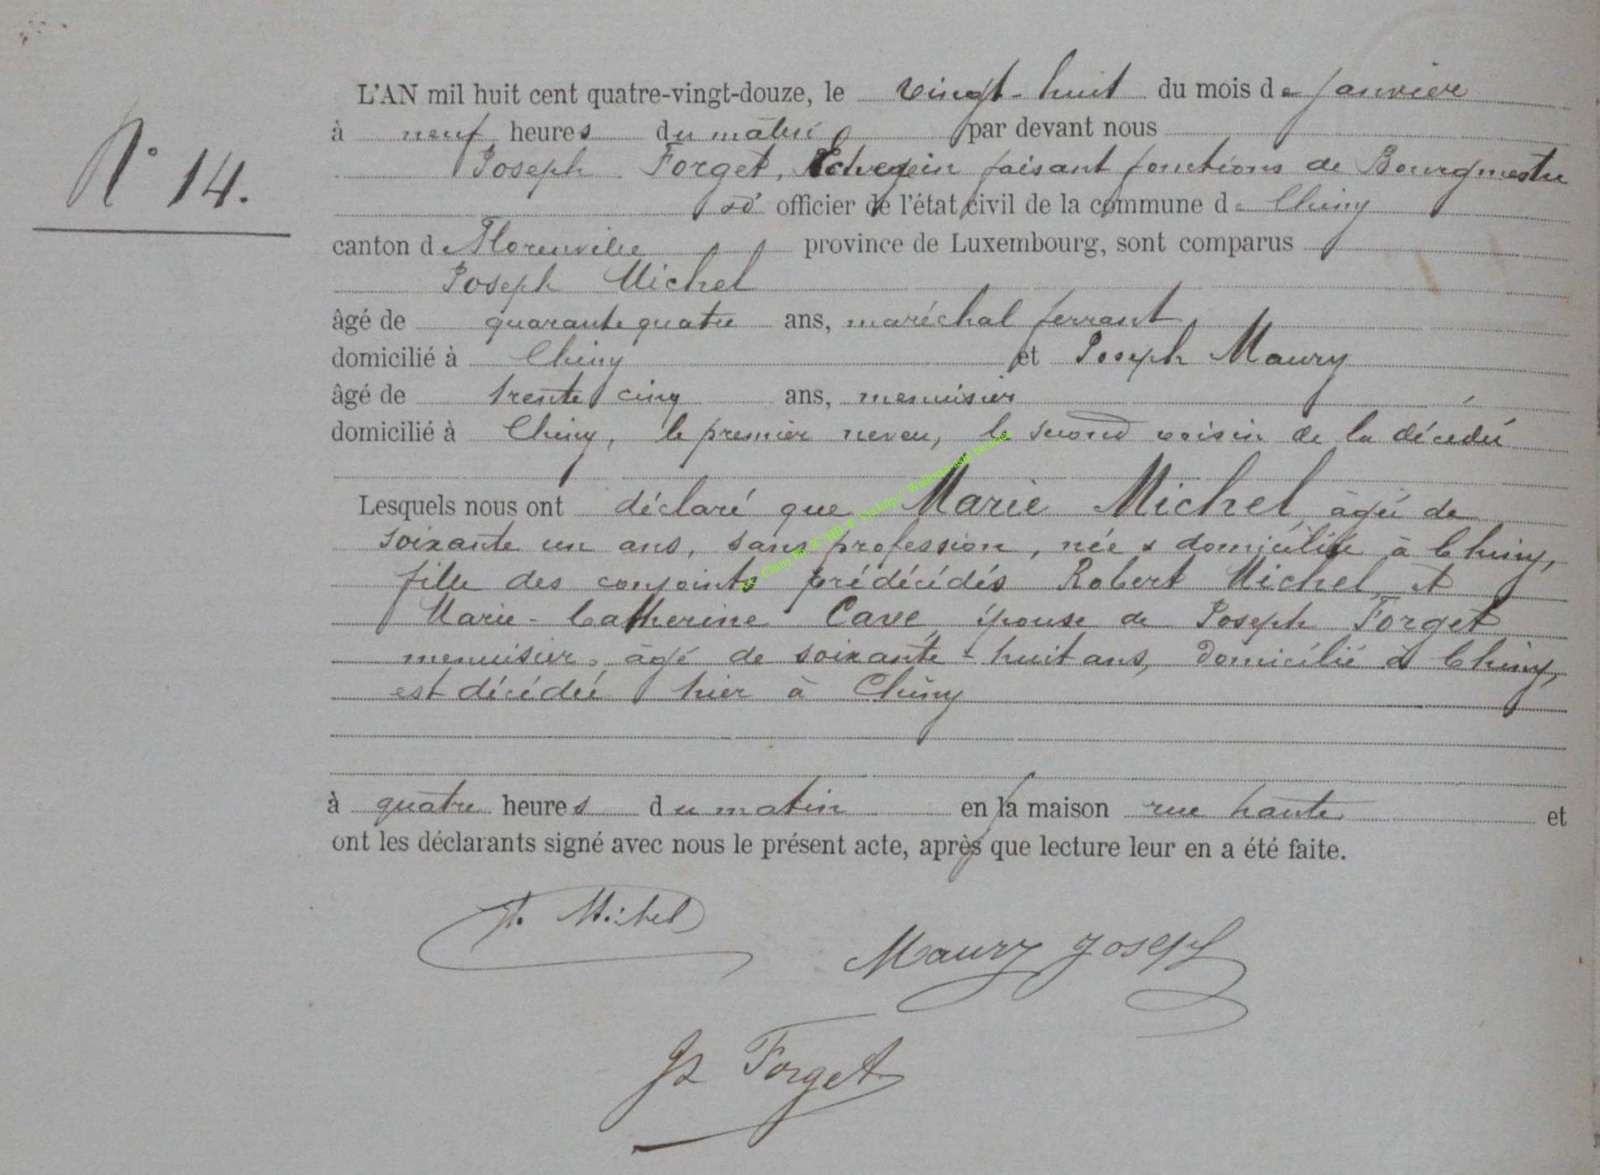 N° 14.
L'AN mil huit cent quatre-vingt-douze, le vingt-huit du mois de janvier
à neuf heures du matin par devant nous
Joseph Forget, Echevin faisant fonctions de Bourgmestre
officier de l'état civil de la commune de Chiny
canton de Florenville province de Luxembourg, sont comparus
Joseph Michel
âgé de quarante quatre ans, maréchal ferrant
domicilié à Chiny et Joseph Maury
âgé de trente cinq ans, menuisier
domicilié à Chiny, le premier neveu, le second voisin de la décédée
Lesquels nous ont déclaré que Marie Michel, âgée de
soixante un ans, sans profession, née & domiciliée à Chiny,
fille des conjoints prédécédés Robert Michel et
Marie-Catherine Cave, épouse de Joseph Forget
menuisier, âgé de soixante-huit ans, domicilié à Chiny,
est décédée hier à Chiny
à quatre heures du matin en la maison rue haute et
ont les déclarants signé avec nous le présent acte, après que lecture leur en a été faite.
J. Michel
Maury Joseph
Js Forget